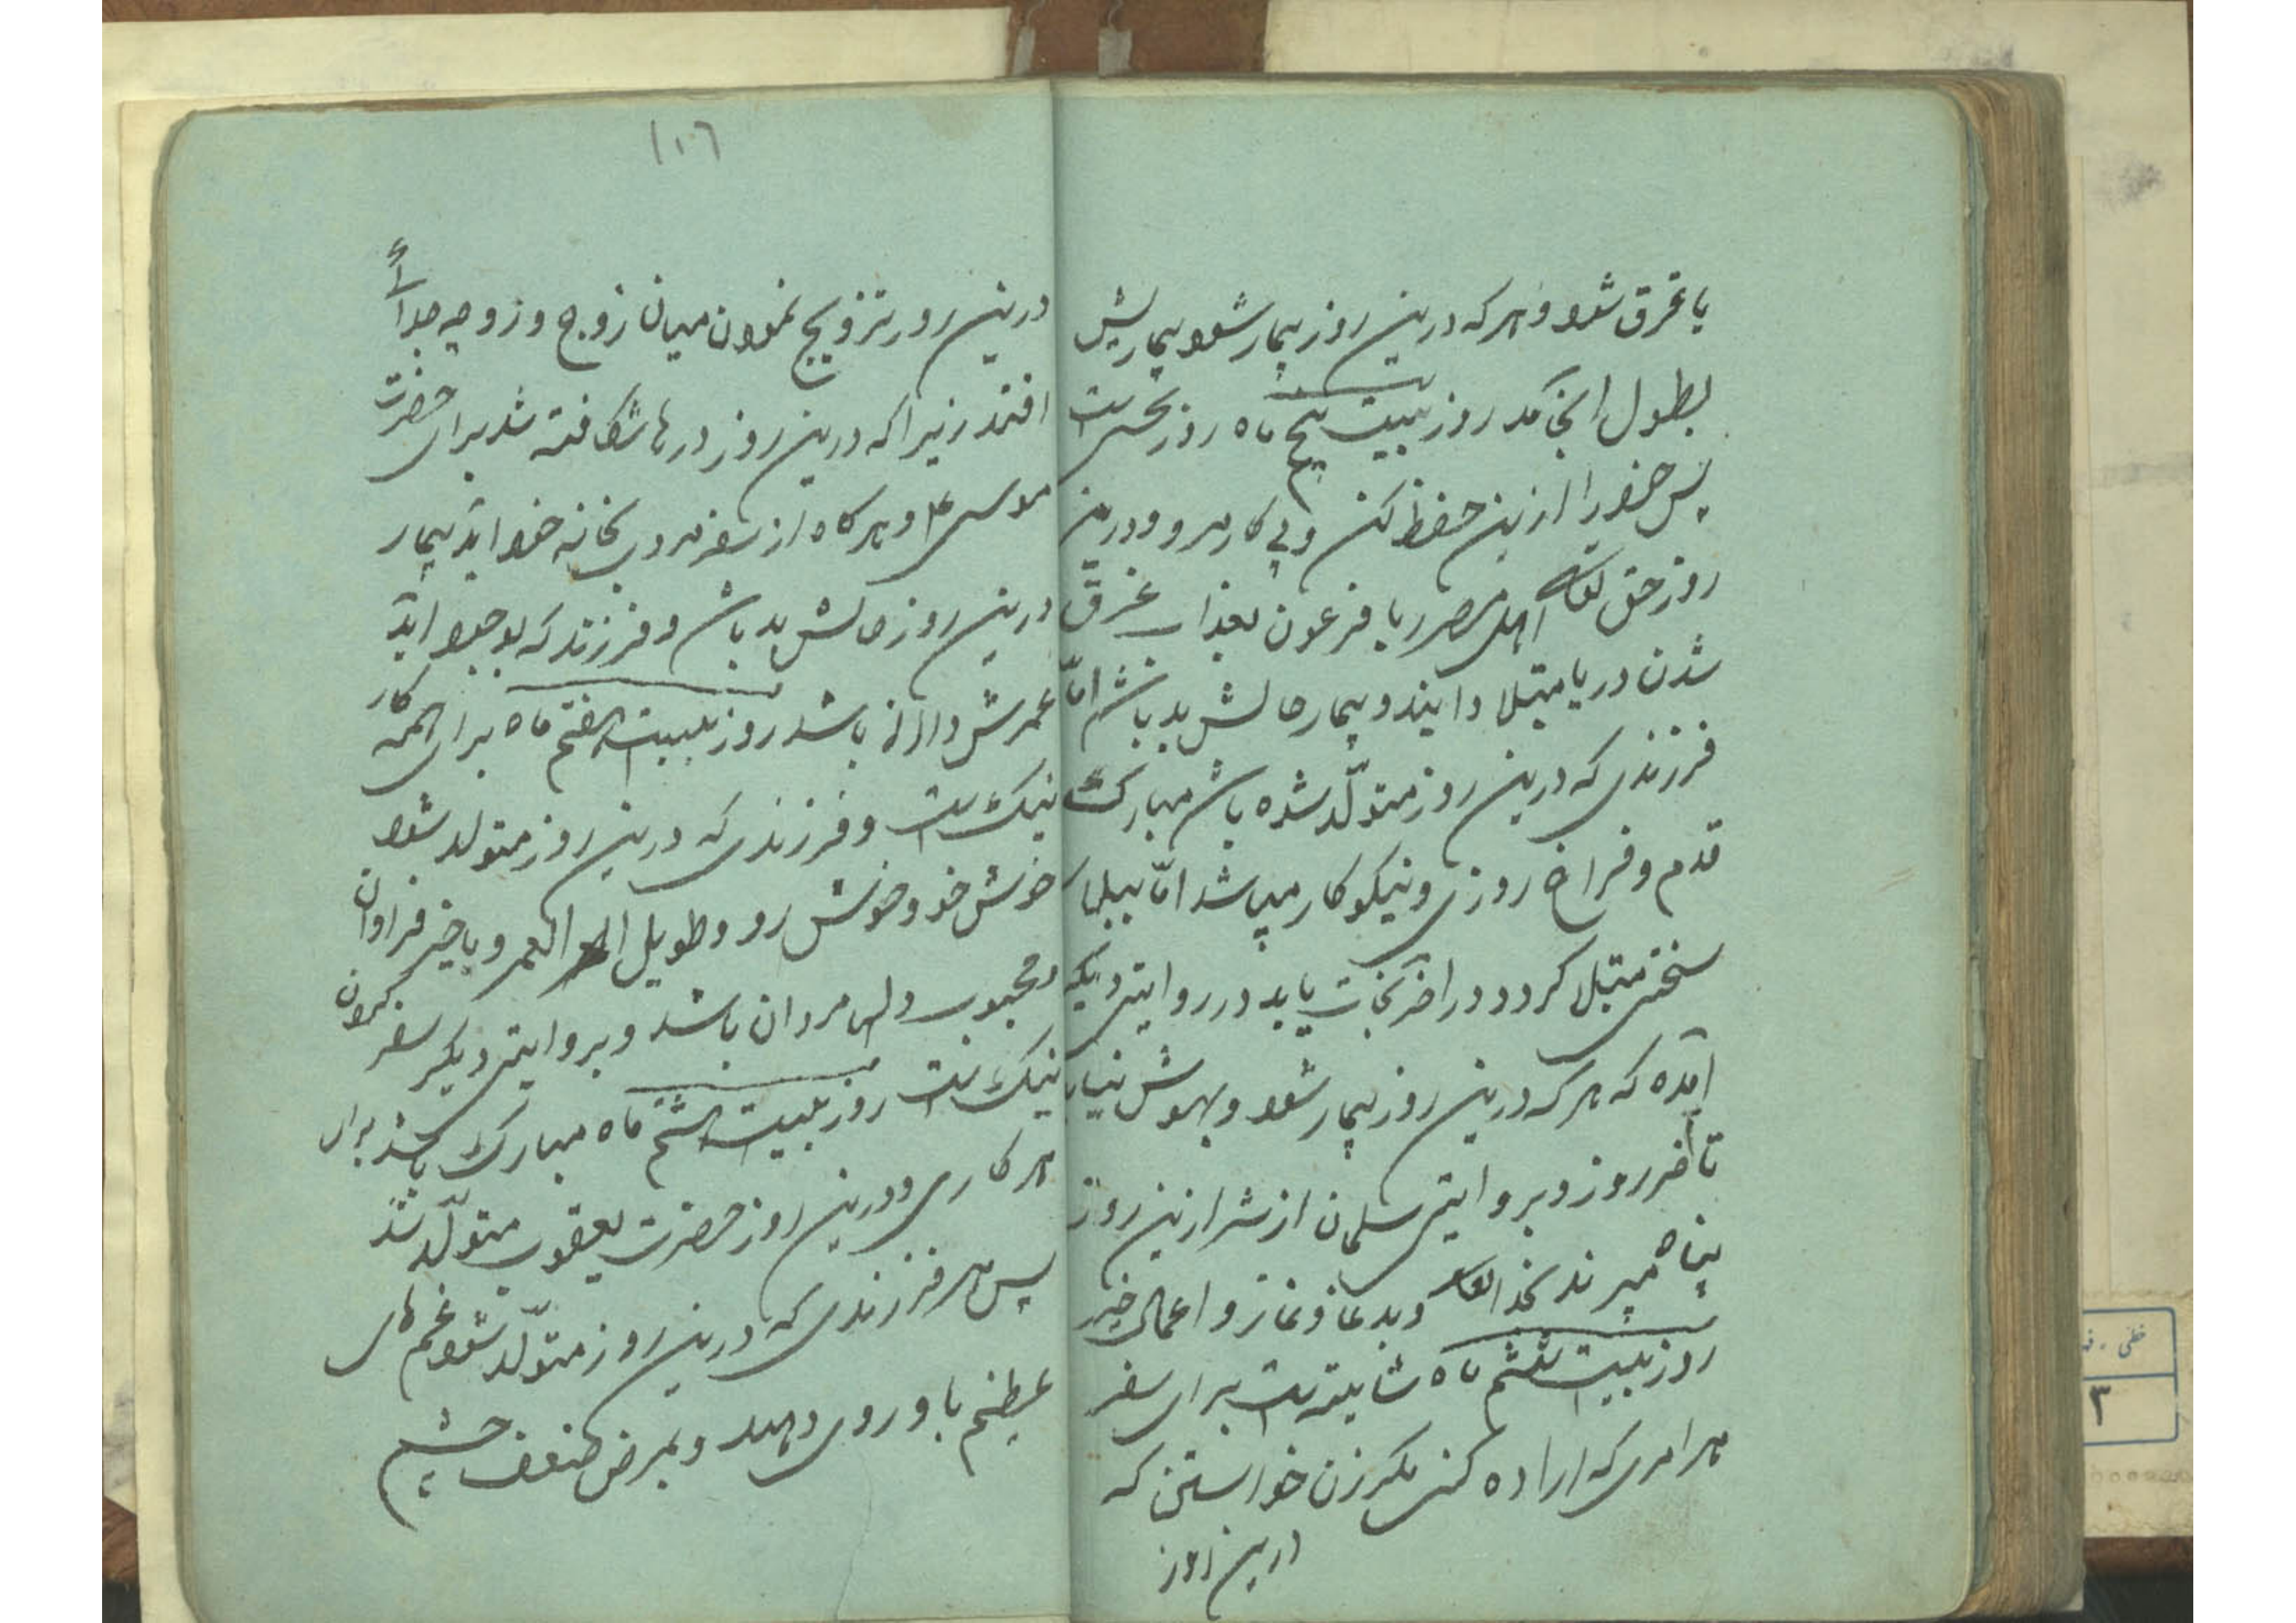 یا غرق شود و هر که درین روز بیمار شود بیماریش
بطول انجامد روز بیست پنج ماه روز نحس است
پس خود را ازین حفظ کن و پی کار مرو و درین
روز حق تعالی اهل مصر را با فرعون بعذاب غرق
شدن دریا مبتلا و بیمار حالش بد باشد امّا
فرزندی که درین روز متولّد شده باشد مبارک
قدم و فراخ روزی و نیکوکار میباشد امّا ببلای
سختی مبتلا کردد و در اخر نجات یابد در روایتی دیگر
آمده که هر که درین روز بیمار شود و بهوش نیاید
تا آخر روز و بروایتی سلمان از شر ازین روز
پناه میبرند بخدا تعالی و بدعا و نماز و اعمال خیر
روز بیست ششم ماه شایسته است برای سفر
هر امری که اراده کنی مکر زن خواستن که
درین روز
۱۰۶
درین روز تزویج نمودن میان زوج و زوجه جدائی
افتد زیرا که درین روز درها شکافته شد برای حضرت
موسی ع و هرکاه از سفر مروی بخانه خود آید بیمار
درین روز حالش بد باشد و فرزند که بوجود آید
عمرش دراز باشد روز بیست هفتم ماه برای همه کار
نیک است و فرزندی که درین روز متولد شود
خوش خو و خوش رو و طویل العمر و با خیر فراوان
و محبوب دلهای مردان باشد و بروایتی دیگر سفر کردن
نیک است روز بیست هشتم ماه مبارک باشد برای
هر کاری و درین روز حضرت یعقوب متولّد شد
پس هر فرزندی که درین روز متولّد شود غم های
عظیم باو روی دهد و بمرض ضعف چشم
خطی - ف
۳